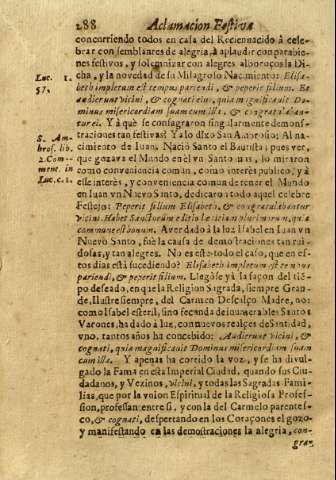 288 Aclamacion Festiva
concurriendo todos en casa del Reciennacido à cele-
brar con semblantes de alegria, à aplaudir con parabie-
nes festivos, y solemnizar con alegres alborozos la Di-
Luc. 1. cha, y la novedad de su Milagroso Nacimiento: Elisa-
57. beth impletum est tempus pariendi, & peperit filium. Et
audierunt vicini, & cognati eius, quia magnificavit Do-
minus misericordiam suam cum illa, & congratulaban-
tur ei. Y à què se consagraron singularmente demons-
S. Am- traciones tan festivas? Ya lo dixo San Ambrosio: Al na-
bros. lib. cimiento de Iuan, Naciò Santo el Bautista; pues ver,
2. Com- que gozava el Mundo en èl vn Santo mas, lo miraron
ment. in como conveniencia comun, como interès publico; y à
Luc. c. 1. esse interès, y conveniencia comun de tener el Mundo
en Iuan vn Nuevo Santo, dedicaron todo aquel celebre
Festejo: Peperit filium Elisabeth, & congratulabantur
vicini. Habet Sanctorum editio lætitiam plurimorum, quia
commune est bonum. Aver dado à la luz Isabel en Iuan vn
Nuevo Santo, fuè la causa de demonstraciones tan rui-
dosas, y tan alegres. No es esto todo el caso, que en es-
tos dias està sucediendo? Elisabeth impletum est tempus
pariendi, & peperit filium. Llegòse yà la saçon del tie-
po deseado, en que la Religion Sagrada, siempre Gran-
de, Ilustre siempre, del Carmen Descalço Madre, no
como Isabel esteril, sino fecunda de inumerables Santos
Varones, ha dado à luz, con nuevos realçes de Santidad,
vno, tantos años ha concebido: Audierunt vicini, &
cognati, quia magnificavit Dominus misericordiam suam
cum illa. Y apenas ha corrido la voz, y se ha divul-
gado la Fama en esta Imperial Ciudad, quando sus Ciu-
dadanos, y Vezinos, vicini, y todas las Sagradas Fami-
lias, que por la vnion Espiritual de la Religiosa Profes-
sion, professan entre si, y con la del Carmelo parentes-
co, & cognati, despertando en los Coraçones el gozo,
y manifestando en las demostraciones la alegria, con-
gra-